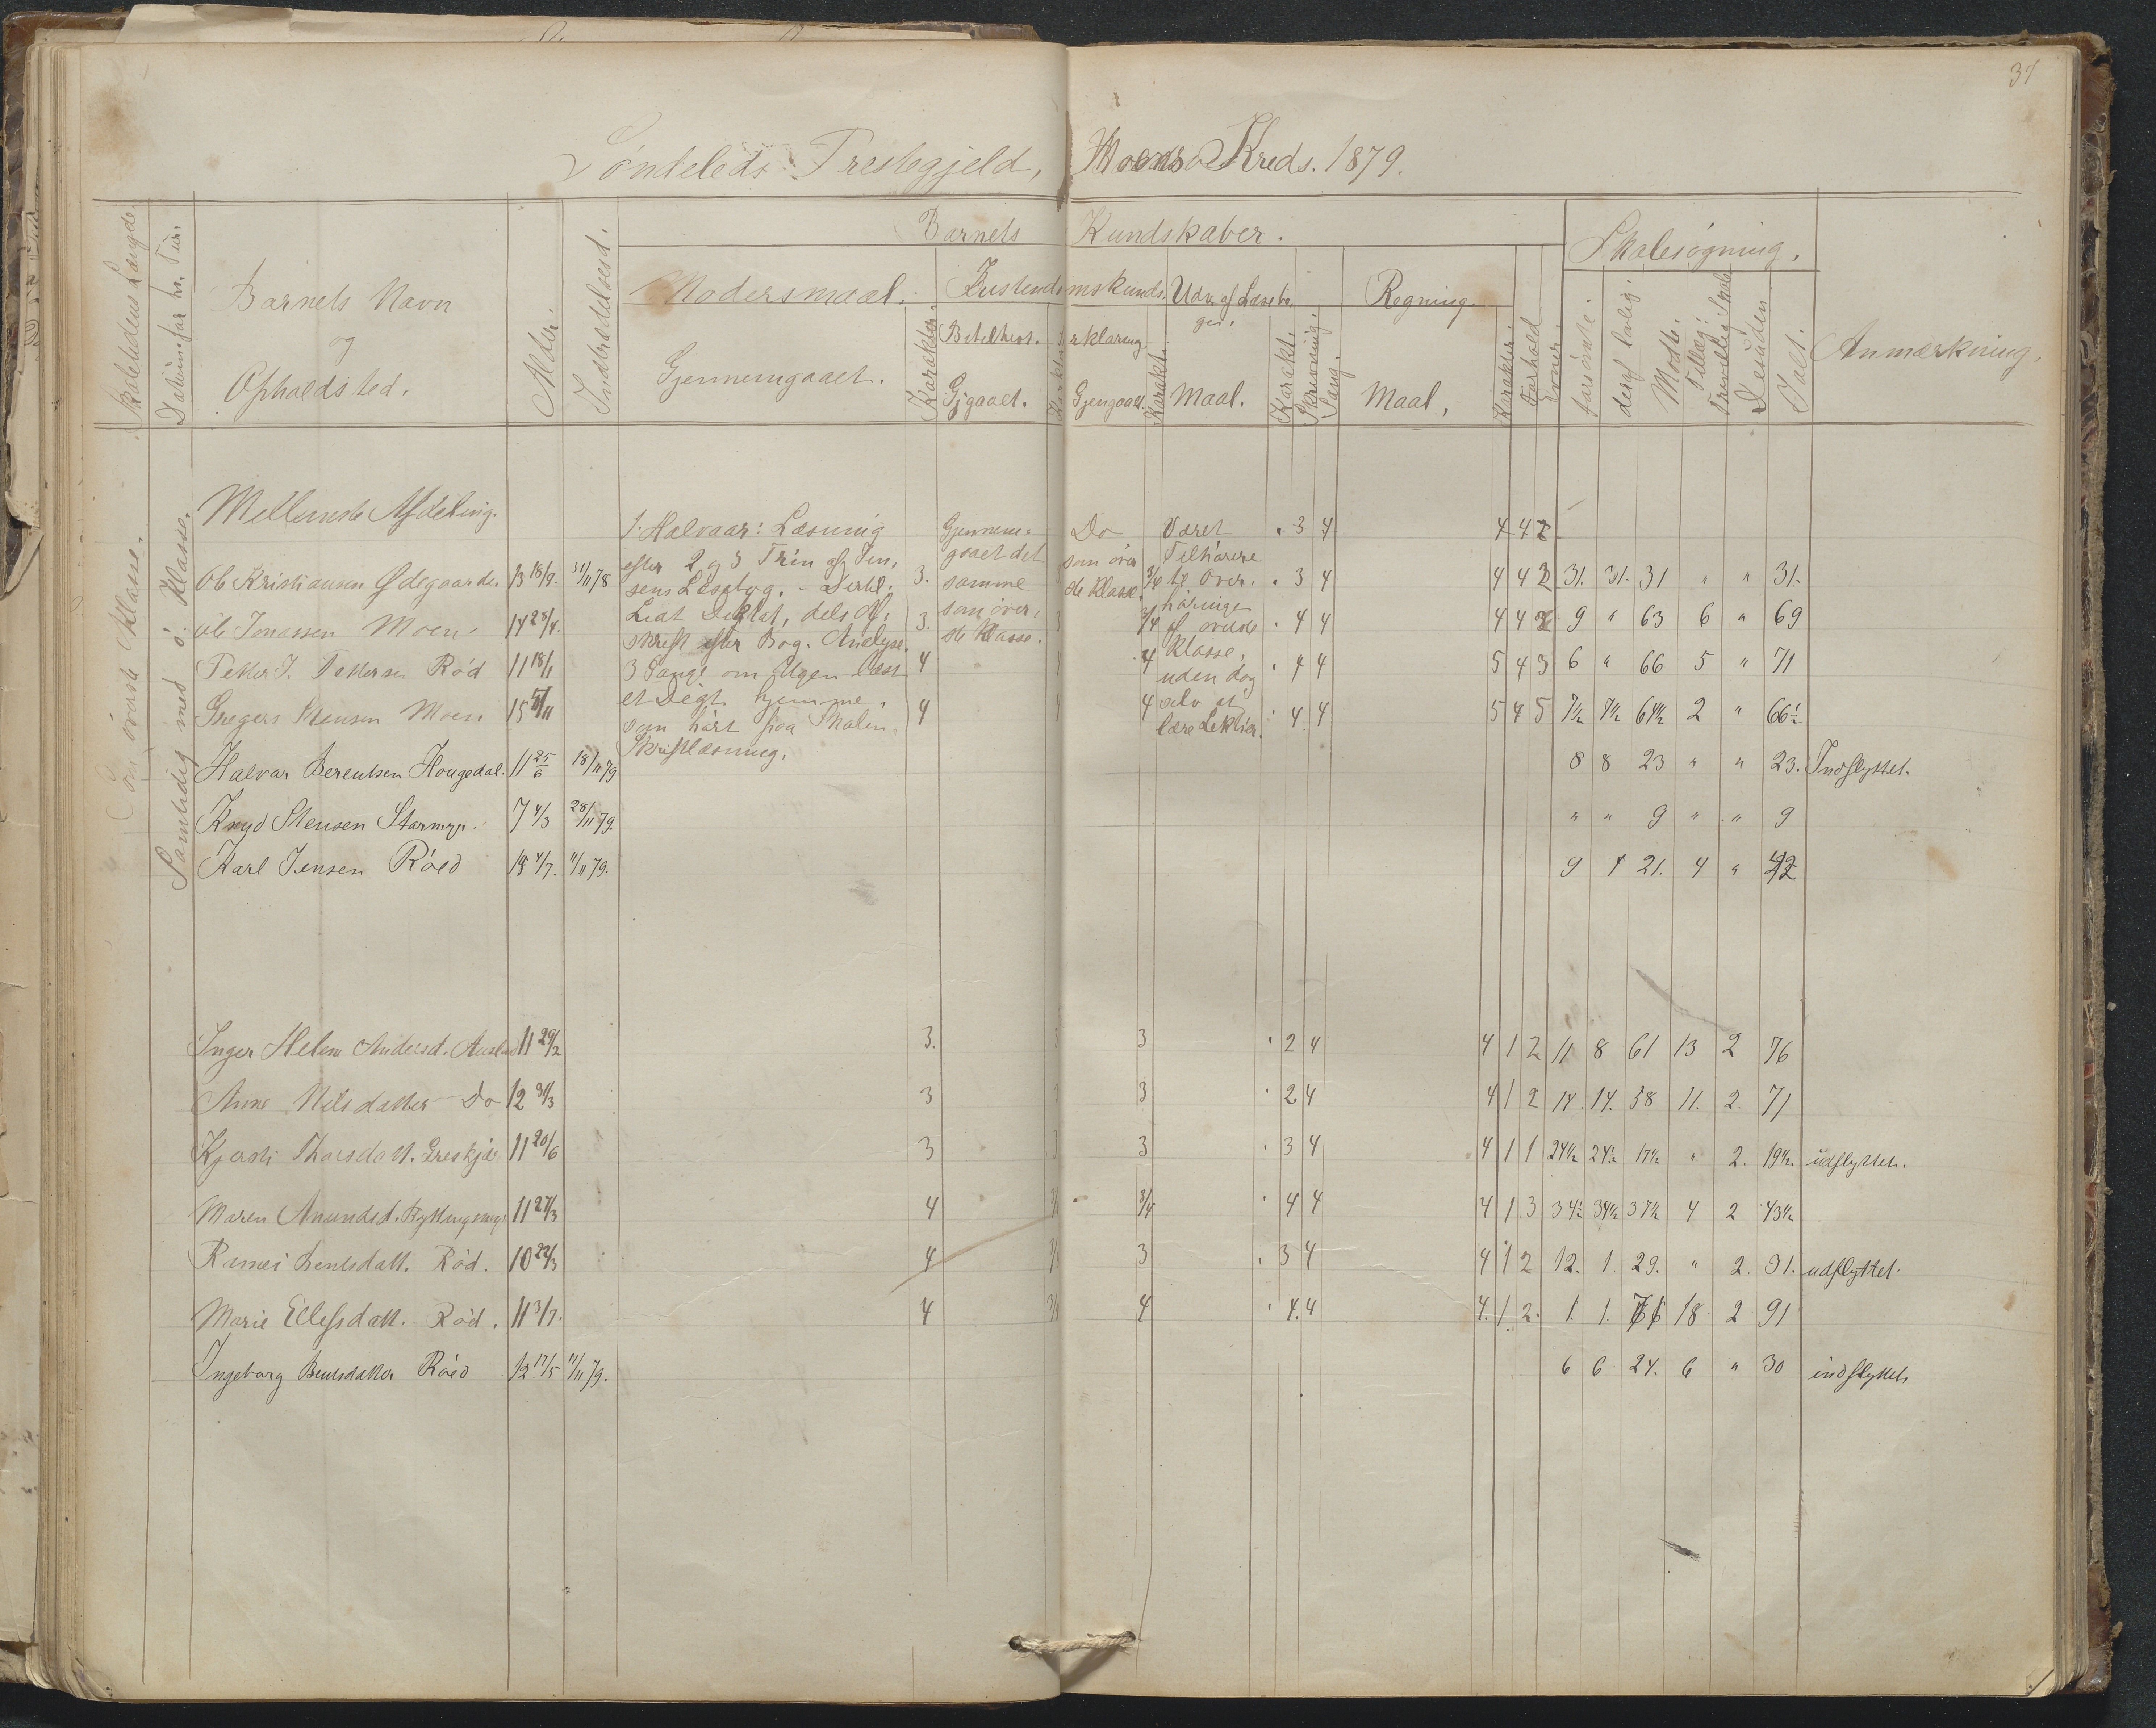 37
Søndeleds Prestegjeld, Moens Kreds. 1879.
Skoletidens Længde.
Datum for hv. Tur.
Barnets Navn
og
Opholdsted.
Alder.
Indtrædelsesd.
Barnets Kundskaber.
Modersmaal.
Gjennemgaaet.
Karakter.
Kristendomskunds.
Bibelhist.
Gjgaaet.
Forklaring.
Gjengaaet.
Karakt.
Udv. af Læsebo
gen.
Maal.
Karakt.
Skrivning.
Sang.
Regning.
Maal.
Karakter.
Forhold
Evner.
Skolesøgning.
forsømte.
deraf lovlig.
Mødte.
Tillæg.
frivillig Skole
Desuden
Ialt.
Anmærkning.
Som øverste Klasse.
Samtidig med ø. Klasse.
Mellemste Afdeling.
1. Halvaar: Læsning
efter 2 og 3 Trin af Jen,
sens Læsebog. - Dertil
Lidt Diktat, dels Af,
skrift efter Bog. Analyse.
3 Gange om Ugen læst
et Digt hjemme,
som hørt paa Skolen.
Skriftlæsning.
Gjennem-
gaaet det
samme
som øver,
ste Klasse.
Do
som øver
ste Klasse.
Været
Tilhørere
te Over,
høringe
af øverste
Klasse,
uden dog
selv at
lære Lektier.
" 3 4 4 4 2
Ole Kristiansen Ødegaarden 13 18/9. 31/11 78 3. 3/4 " 3 4 4 4 2 31. 31. 31 " " 31.
Ole Jonassen Moen 14 25/4. 3. 3 3/4 " 4 4 4 4 3 9 " 63 6 " 69
Petter J. Pettersen Rød 11 18/1 4 4 4 " 4 4 5 4 3 6 " 66 5 " 71
Gregers Stensen Moen 15 5/11 4 4 4 " 4 4 5 4 5 7½ 7½ 64½ 2 " 66½
Halvor Berentsen Hougedal. 11 25/6 18/11 79 8 8 23 " " 23. Indflyttet.
Knud Stensen Stormyr. 7 4/3 28/11 79. " " 9 " " 9
Karl Jensen Røed 4/7. 11/11 79. 9 1 21. 4 "
Inger Helene Andersd. 11 29/2 3. 3 3 " 2 4 4 1 2 11 8 61 13 2 76
Anne Nilsdatter Do 12 31/3 3 3 3 " 2 4 4 1 2 14. 14. 58 11. 2. 71
Kjersti Thorsdatt. 11 20/6 3 3 3 " 3 4 4 1 1 24½ 24½ 17½ " 2. 19½. udflyttet.
Maren Amundsd. 11 27/3 4 3/4 3/4 " 4 4 4 1 3 34½ 34½ 37½ 4 2 43½
Bentsdatt. Rød. 10 23/3 4 3/4 3 " 3 4 4 1 2 12. 1. 29. " 2. 31. udflyttet.
Marie Ellefsdatt. Rød. 11 3/7. 4 3/4 4 " 4. 4 4. 1 2. 1. 1. 71 18 2 91
Ingeborg Bentsdatter Røed 12 17/5 11/11 79. 6 6 24. 6 " 30 indflyttet.